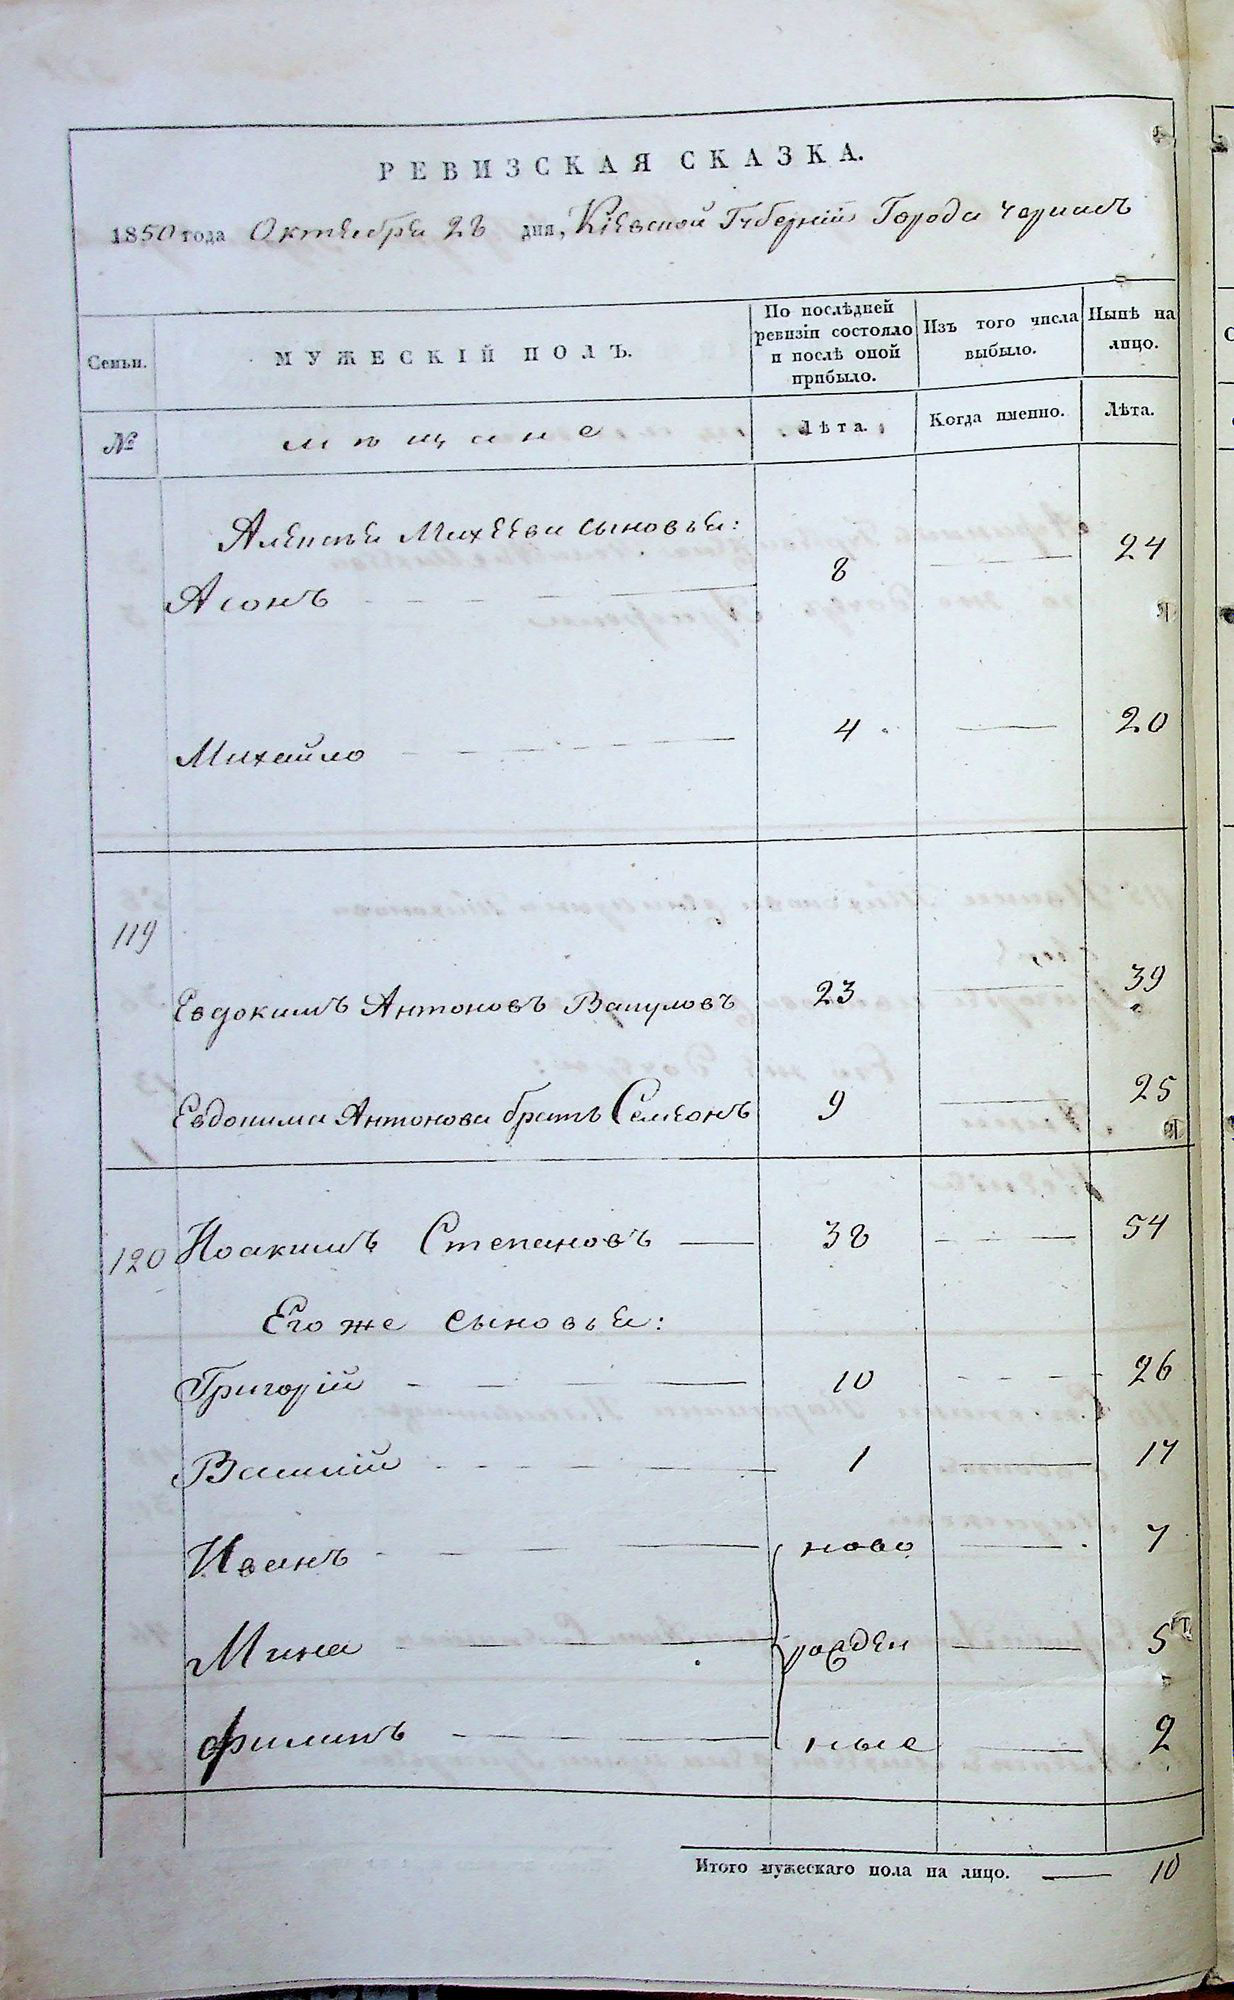 РЕВИЗСКАЯ СКАЗКА.
1850 года Октября 28 дня, Кіевской Губерніи Города
Семьи. МУЖЕСКІЙ ПОЛЪ. По послѣдней ревизіи состояло и послѣ оной прибыло. Изъ того числа выбыло. Нынѣ на лицо.
№ мѣщане Лѣта. Когда именно. Лѣта.
Алексѣя Михѣева сыновья:
Асонъ 8 24
Михайло 4 20
119
Евдокимъ Антоновъ Вакуловъ 23 39
Евдокима Антонова братъ Семѣонъ 9 25
120 Иоакимъ Степановъ 38 54
Его же сыновья:
Григорій 10 26
Василій 1 17
Иванъ ново 7
Мина рожден 5
Филипъ ные 2
Итого мужескаго пола на лицо. 10